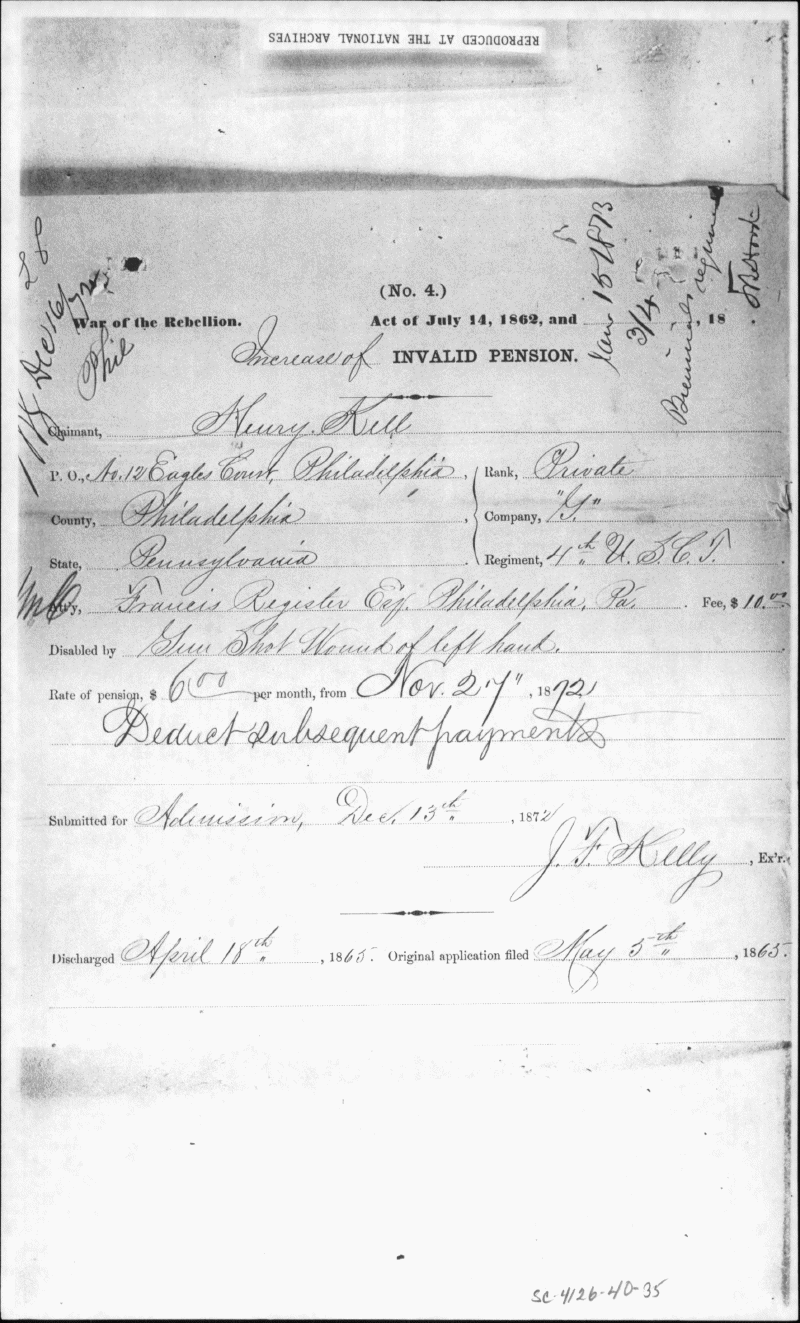 REPRODUCED AT THE NATIONAL ARCHIVES
Dec 16/72
Phil
Jan 15 1873
3/4
Biennials required
(No. 4.)
War of the Rebellion. Act of July 14, 1862, and , 18 .
Increase of INVALID PENSION.
Claimant, Henry Kell
P. O., No. 12 Eagles Court, Philadelphia, Rank, Private
County, Philadelphia, Company, "G."
State, Pennsylvania. Regiment, 4th U. S. C. T.
Att'y, Francis Register Esq. Philadelphia, Pa. Fee, $10.00
Disabled by Gun Shot Wound of left hand.
Rate of pension, $ 6 00 per month, from Nov. 27", 1872
Deduct subsequent payments
Submitted for Admission, Dec. 13th, 1872
J. F. Kelly, Ex'r.
Discharged April 18th, 1865. Original application filed May 5th, 1865.
SC-4126-40-35